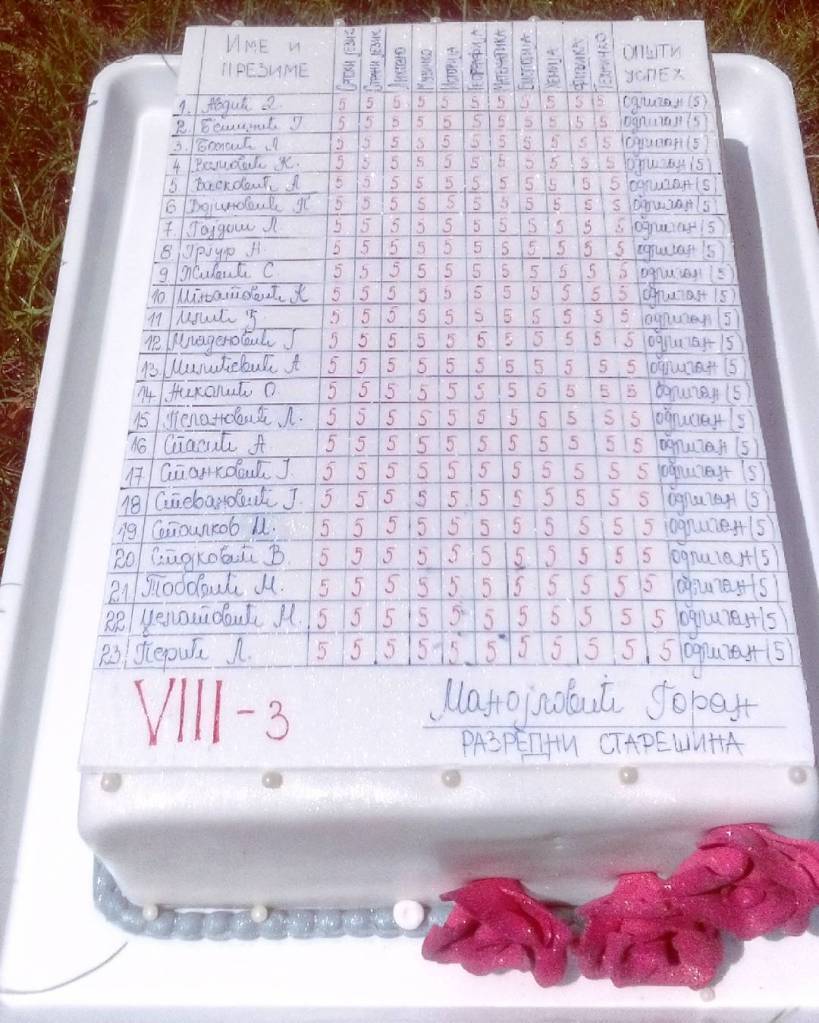 ИМЕ И ПРЕЗИМЕ СРПСКИ ЈЕЗИК СТРАНИ ЈЕЗИК ЛИКОВНО МУЗИЧКО ИСТОРИЈА ГЕОГРАФИЈА МАТЕМАТИКА БИОЛОГИЈА ХЕМИЈА ФИЗИКА ТЕХНИЧКО ОПШТИ УСПЕХ
1. Авдић 5 5 5 5 5 5 5 5 5 5 5 одличан (5)
2. 5 5 5 5 5 5 5 5 5 5 5 одличан (5)
3. Божић Л 5 5 5 5 5 5 5 5 5 5 5 одличан (5)
4 К. 5 5 5 5 5 5 5 5 5 5 5 одличан (5)
5 Васковић А 5 5 5 5 5 5 5 5 5 5 5 одличан (5)
6 Војиновић 5 5 5 5 5 5 5 5 5 5 5 одличан (5)
7. Гоздић Л 5 5 5 5 5 5 5 5 5 5 5 одличан (5)
8 Гргур Н 5 5 5 5 5 5 5 5 5 5 5 одличан (5)
9 Живић С 5 5 5 5 5 5 5 5 5 5 5 одличан (5)
10 К 5 5 5 5 5 5 5 5 5 5 5 одличан (5)
11 Илић 5 5 5 5 5 5 5 5 5 5 5 одличан (5)
12 Младеновић Г 5 5 5 5 5 5 5 5 5 5 5 одличан (5)
13 Милићевић А 5 5 5 5 5 5 5 5 5 5 5 одличан (5)
14 Николић О 5 5 5 5 5 5 5 5 5 5 5 одличан (5)
15 Пејановић Л. 5 5 5 5 5 5 5 5 5 5 5 одличан (5)
16 Спасић А. 5 5 5 5 5 5 5 5 5 5 5 одличан (5)
17 Станковић Ј. 5 5 5 5 5 5 5 5 5 5 5 одличан (5)
18 Стевановић Г. 5 5 5 5 5 5 5 5 5 5 5 одличан (5)
19 Стоилков 5 5 5 5 5 5 5 5 5 5 5 одличан (5)
20 В 5 5 5 5 5 5 5 5 5 5 5 одличан (5)
21 М. 5 5 5 5 5 5 5 5 5 5 5 одличан (5)
22 5 5 5 5 5 5 5 5 5 5 5 одличан (5)
23 Перић Л. 5 5 5 5 5 5 5 5 5 5 5 одличан (5)
VIII-3 Манојловић Горан
РАЗРЕДНИ СТАРЕШИНА